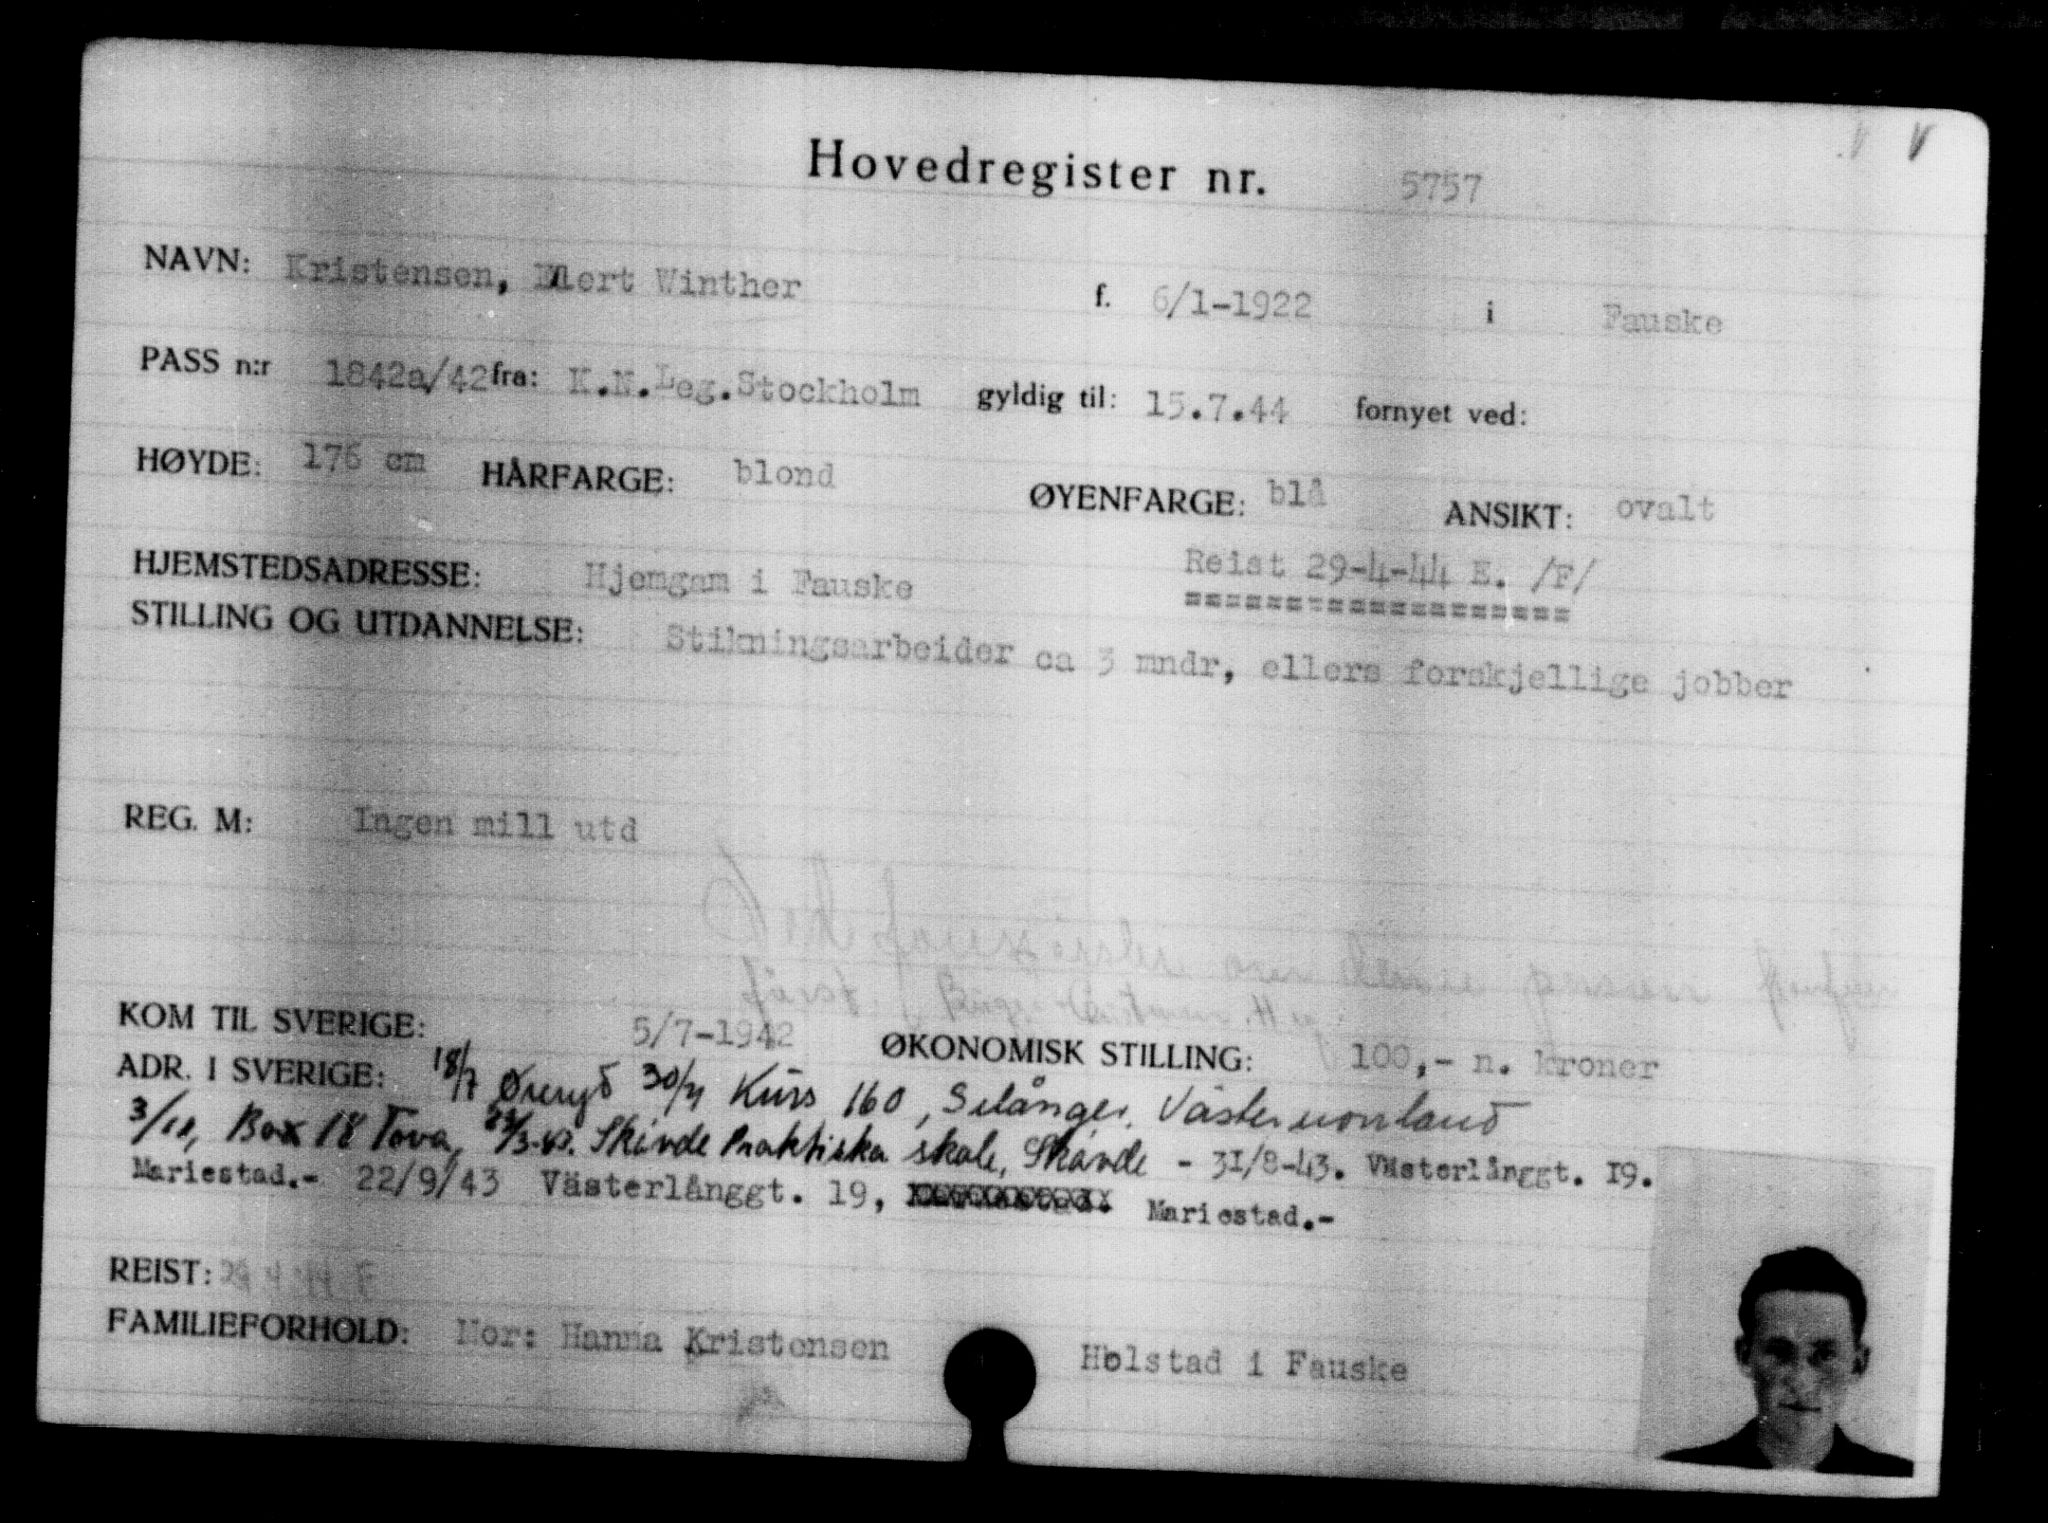 Hovedregister nr. 5757
NAVN: Kristensen, Elert Winther f. 6/1-1922 i Fauske
PASS n:r 1842a/42 fra: K.N.Leg.Stockholm gyldig til: 15.7.44 fornyet ved:
HØYDE: 176 cm HÅRFARGE: blond ØYENFARGE: blå ANSIKT: ovalt
HJEMSTEDSADRESSE: Hjemgam i Fauske Reist 29-4-44 E. /F/
STILLING OG UTDANNELSE: Stikningsarbeider ca 3 mndr, ellers forskjellige jobber
REG. M: Ingen mill utd
KOM TIL SVERIGE: 5/7-1942 ØKONOMISK STILLING: 100,- n. kroner
ADR. I SVERIGE: 18/7 Øreryd 30/7 Kurs 160, Selånger, Västernorrland
3/10, Box 18 Tova, 23/3-43. Skövde Praktiska skole, Skövde - 31/8-43. Västerlånggt. 19.
Mariestad.- 22/9/43 Västerlånggt. 19, Mariestad.-
REIST: 29 4 44 F
FAMILIEFORHOLD: Mor: Hanna Kristensen Holstad i Fauske